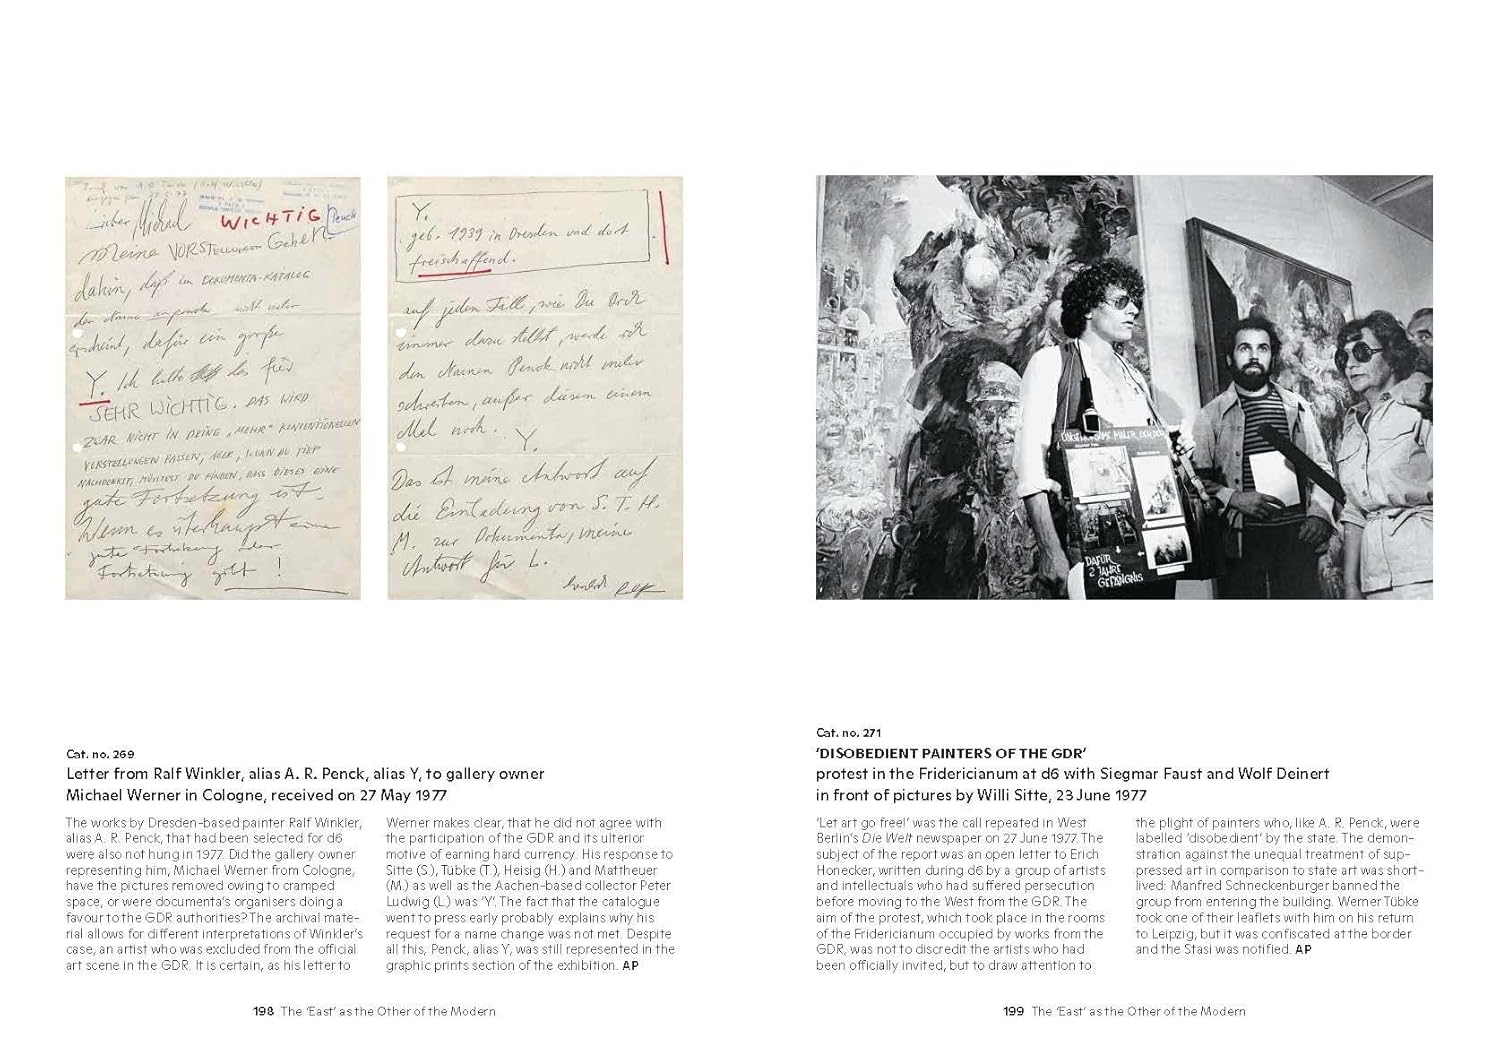 Lieber Michael
WICHTIG Penck
Meine VORSTELLUNGEN Gehen
dahin, daß im DOKUMENTA-KATALOG
der Name nicht mehr
erscheint, dafür ein große
Y. Ich halte das für
SEHR WICHTIG. DAS WIRD
ZWAR NICHT IN DEINE „MEHR" KONVENTIONELLEN
VORSTELLUNGEN PASSEN, ABER, WENN DU TIEF
NACHDENKST, MÜSSTEST DU FINDEN, DASS DIESES EINE
gute Fortsetzung ist.
Wenn es überhaupt eine
gute Fortsetzung oder
Fortsetzung gibt!
Y.
geb. 1939 in Dresden und dort
freischaffend.
auf jeden Fall, wie Du Dich
immer dazu stellst, werde ich
den Namen Penck nicht mehr
schreiben, außer diesem einem
Mal noch. Y.
Das ist meine Antwort auf
die Einladung von S. T. H.
M. zur Dokumenta, meine
Antwort für L.
Ralf
DAFÜR
2 JAHRE
GEFÄNGNIS
Cat. no. 269
Letter from Ralf Winkler, alias A. R. Penck, alias Y, to gallery owner
Michael Werner in Cologne, received on 27 May 1977
The works by Dresden-based painter Ralf Winkler,
alias A. R. Penck, that had been selected for d6
were also not hung in 1977. Did the gallery owner
representing him, Michael Werner from Cologne,
have the pictures removed owing to cramped
space, or were documenta's organisers doing a
favour to the GDR authorities? The archival mate-
rial allows for different interpretations of Winkler's
case, an artist who was excluded from the official
art scene in the GDR. It is certain, as his letter to
Werner makes clear, that he did not agree with
the participation of the GDR and its ulterior
motive of earning hard currency. His response to
Sitte (S.), Tübke (T.), Heisig (H.) and Mattheuer
(M.) as well as the Aachen-based collector Peter
Ludwig (L.) was 'Y'. The fact that the catalogue
went to press early probably explains why his
request for a name change was not met. Despite
all this, Penck, alias Y, was still represented in the
graphic prints section of the exhibition. AP
198 The 'East' as the Other of the Modern
Cat. no. 271
'DISOBEDIENT PAINTERS OF THE GDR'
protest in the Fridericianum at d6 with Siegmar Faust and Wolf Deinert
in front of pictures by Willi Sitte, 23 June 1977
'Let art go free!' was the call repeated in West
Berlin's Die Welt newspaper on 27 June 1977. The
subject of the report was an open letter to Erich
Honecker, written during d6 by a group of artists
and intellectuals who had suffered persecution
before moving to the West from the GDR. The
aim of the protest, which took place in the rooms
of the Fridericianum occupied by works from the
GDR, was not to discredit the artists who had
been officially invited, but to draw attention to
the plight of painters who, like A. R. Penck, were
labelled 'disobedient' by the state. The demon-
stration against the unequal treatment of sup-
pressed art in comparison to state art was short-
lived: Manfred Schneckenburger banned the
group from entering the building. Werner Tübke
took one of their leaflets with him on his return
to Leipzig, but it was confiscated at the border
and the Stasi was notified. AP
199 The 'East' as the Other of the Modern